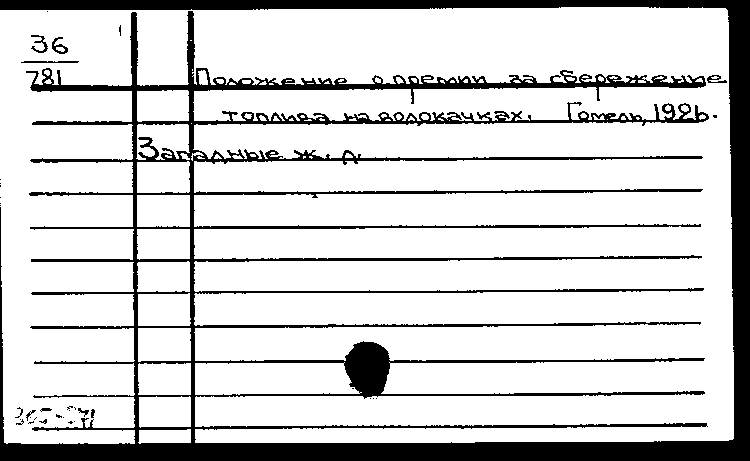 36
781
Положение о премии за сбережение
топлива на водокачках. Гомель, 192
Западные ж. д.